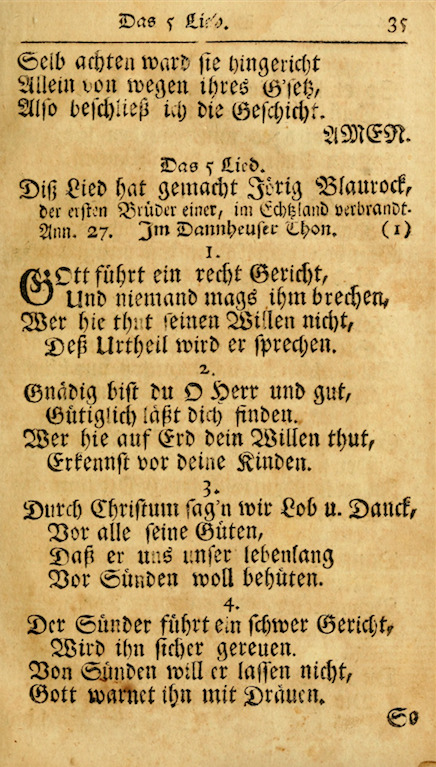 Das 5 Lied. 35
Selb achten ward sie hingericht
Allein von wegen ihres G'setz,
Also beschließ ich die Geschicht.
AMEN.
Das 5 Lied.
Diß Lied hat gemacht Jörig Blaurock,
der ersten Brüder einer, im Echtzland verbrandt.
Ann. 27. Im Dannheuser Thon. (1)
1.
GOtt führt ein recht Gericht,
Und niemand mags ihm brechen,
Wer hie thut seinen Willen nicht,
Deß Urtheil wird er sprechen.
2.
Gnädig bist du O Herr und gut,
Gütiglich läßt dich finden.
Wer hie auf Erd dein Willen thut,
Erkennst vor deine Kinden.
3.
Durch Christum sag'n wir Lob u. Danck,
Vor alle seine Güten,
Daß er uns unser lebenlang
Vor Sünden woll behüten.
4.
Der Sünder führt ein schwer Gericht,
Wird ihn sicher gereuen.
Von Sünden will er lassen nicht,
Gott warnet ihn mit Dräuen.
So